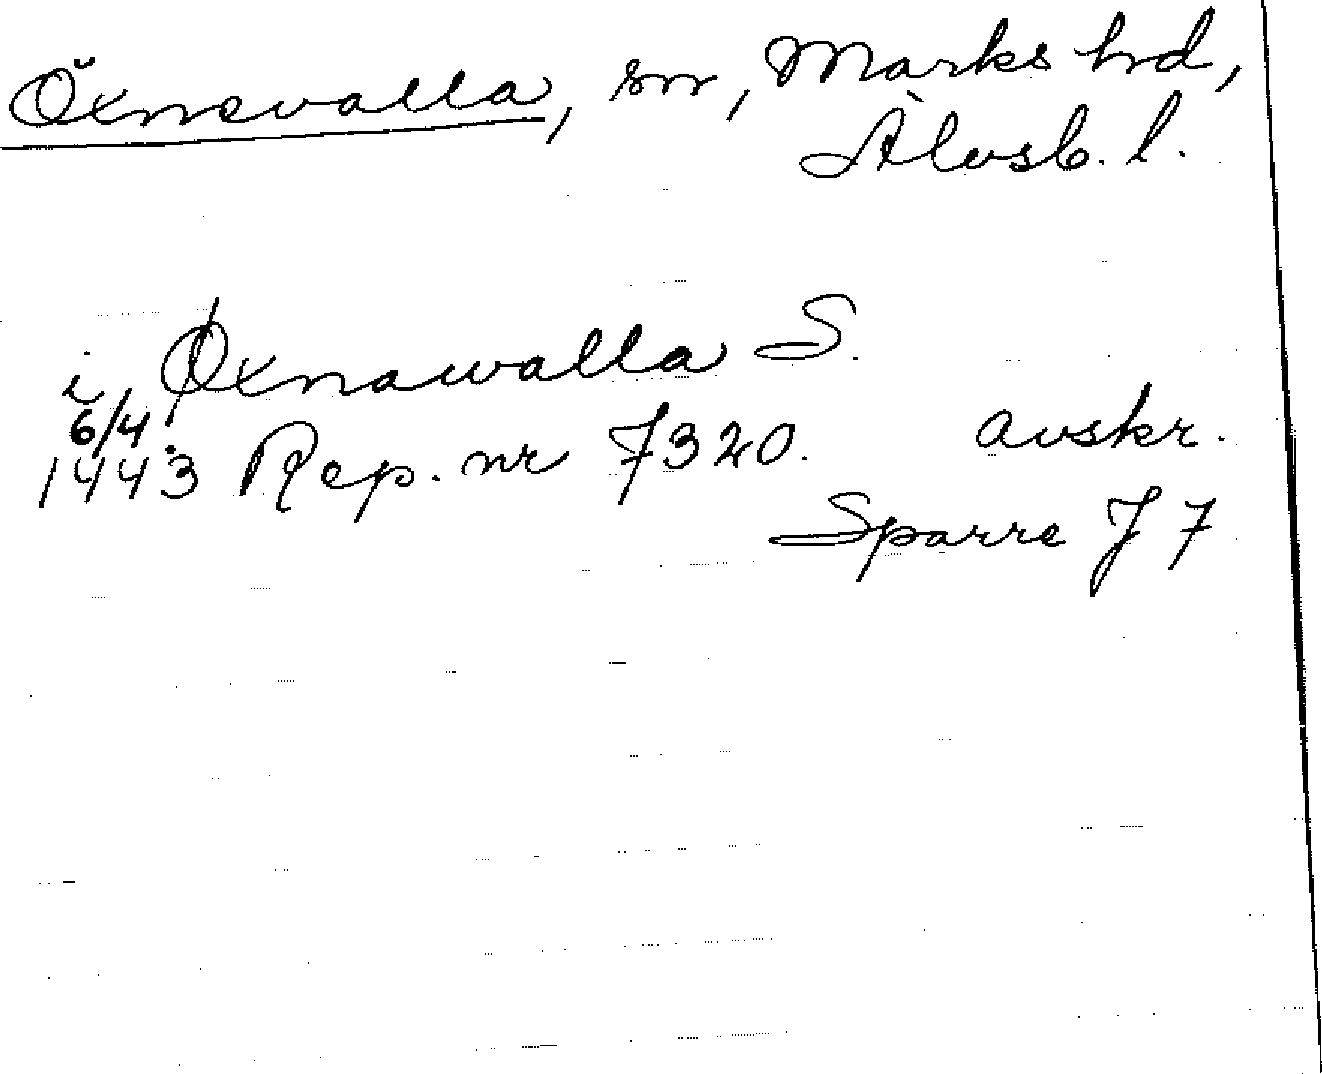 Öxnevalla, sn, Marks hd,
Älvsb. l.
i Øxnawalla S.
6/4
1443 Rep. nr 7320. avskr.
Sparre J 7